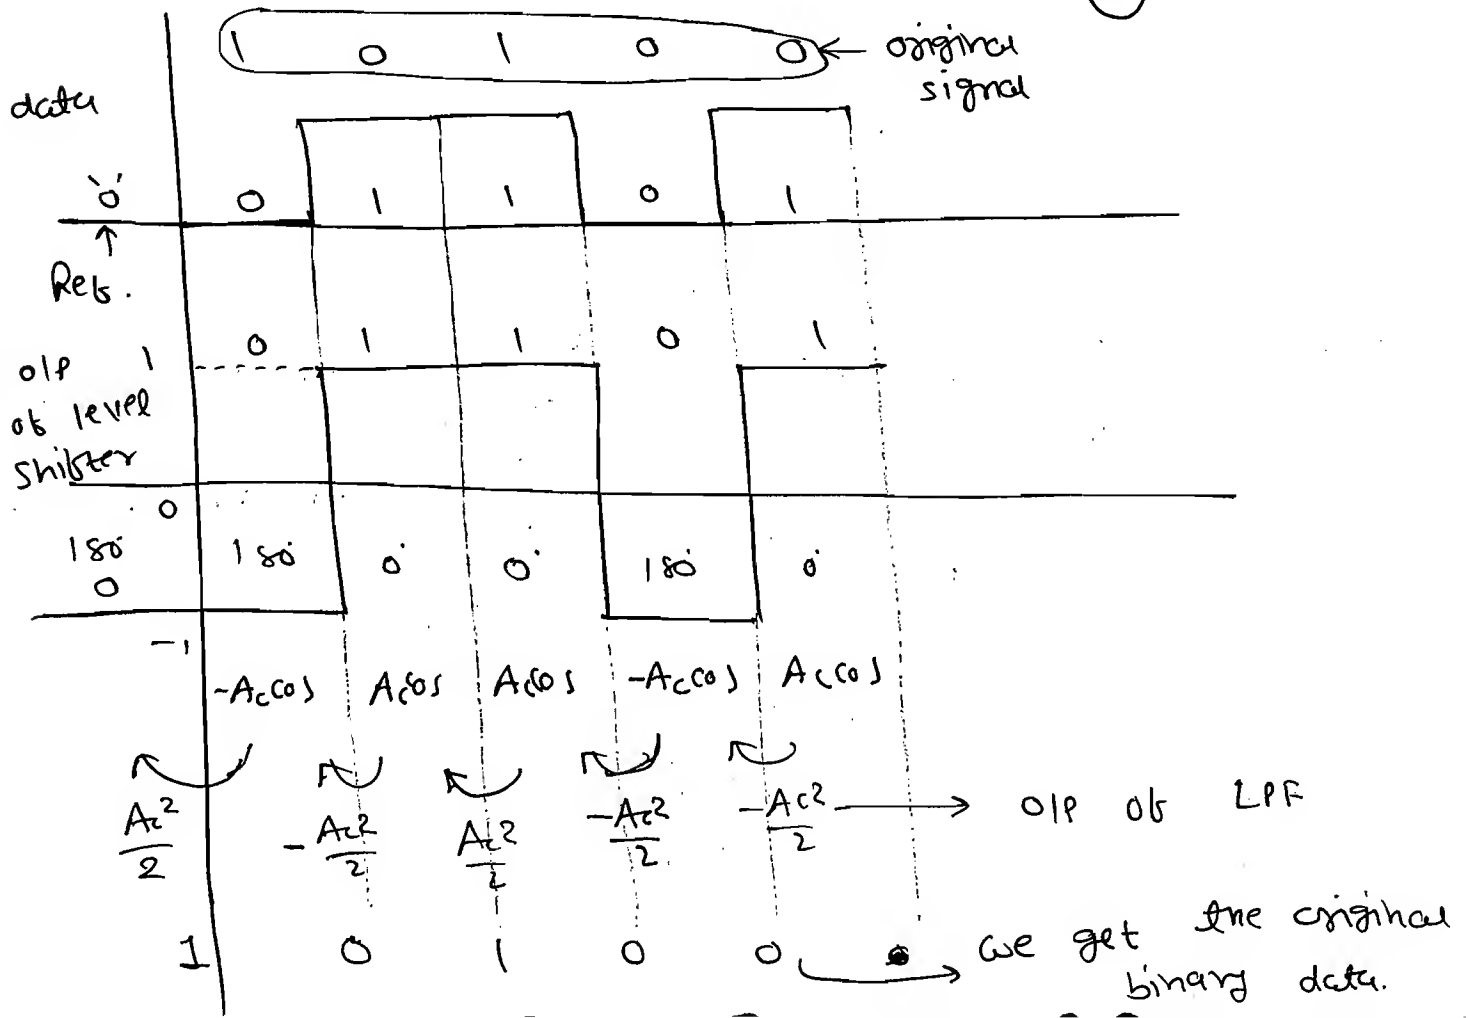 1 0 1 0 0 ← original
signal
data
'0' 0 1 1 0 1
↑
Ref.
0 1 1 0 1
o/p 1
of level
shifter
0
180° 180° 0° 0° 180° 0°
0
-1
-Ac cos Ac cos Ac cos -Ac cos Ac cos
Ac²/2 -Ac²/2 Ac²/2 -Ac²/2 -Ac²/2 → O/P of LPF
1 0 1 0 0 → we get the original
binary data.